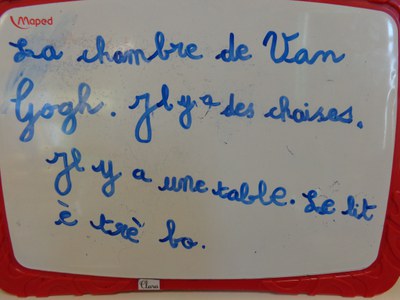 Maped
La chambre de Van
Gogh. Il y a des chaises.
Il y a une table. Le lit
è trè bo.
Clara